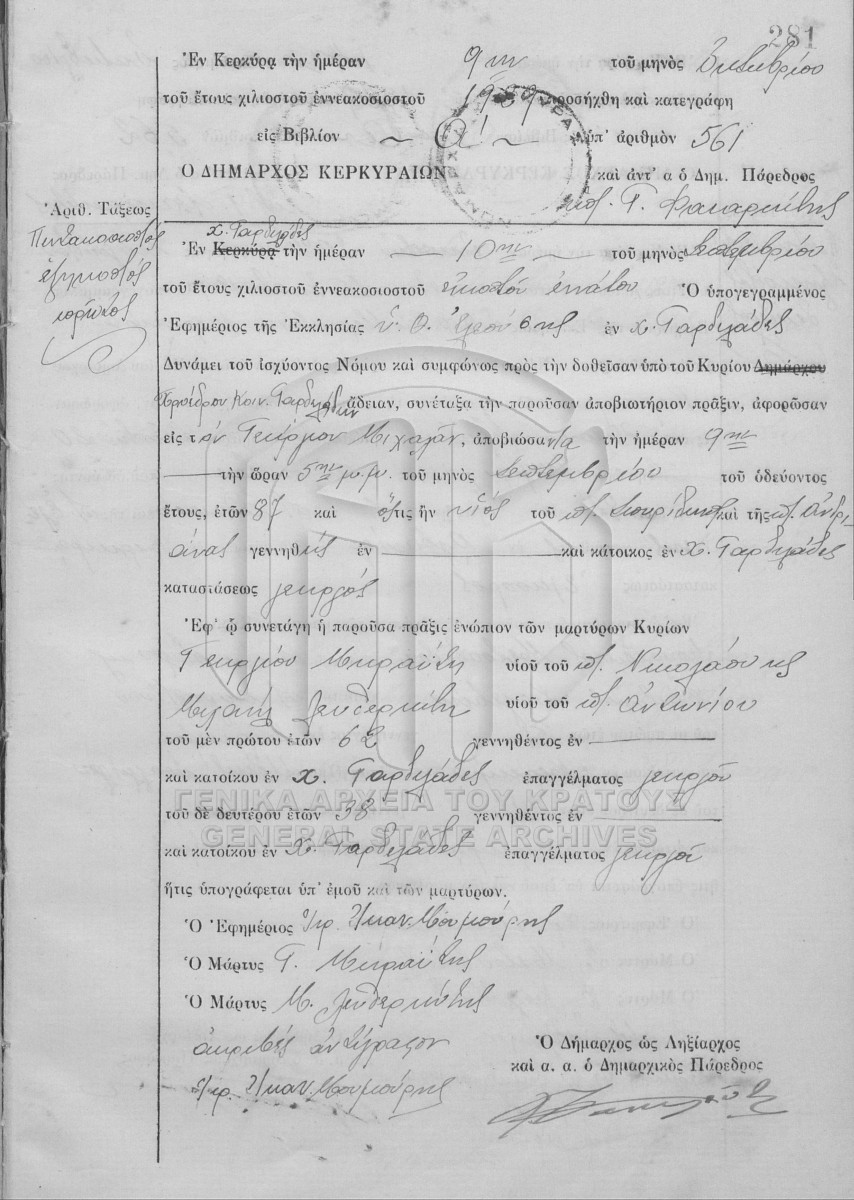 281
Ἐν Κερκύρᾳ τὴν ἡμέραν 9ην τοῦ μηνὸς Ὀκτωβρίου
τοῦ ἔτους χιλιοστοῦ ἐννεακοσιοστοῦ 1929 προσήχθη καὶ κατεγράφη
εἰς Βιβλίον Α' ὑπ' ἀριθμὸν 561
Ο ΔΗΜΑΡΧΟΣ ΚΕΡΚΥΡΑΙΩΝ καὶ ἀντ' α ὁ Δημ. Πάρεδρος
Ἀριθ. Τάξεως
Πεντακοσιοστὸς
ἑξηκοστὸς
πρῶτος
χ. Γαρδελάδες
Ἐν Κερκύρᾳ τὴν ἡμέραν 10ην τοῦ μηνὸς Σεπτεμβρίου
τοῦ ἔτους χιλιοστοῦ ἐννεακοσιοστοῦ εἰκοστοῦ ἐννάτου Ὁ ὑπογεγραμμένος
Ἐφημέριος τῆς Ἐκκλησίας ὑ. Θ. Ἐλεούσης ἐν χ. Γαρδελάδες
Δυνάμει τοῦ ἰσχύοντος Νόμου καὶ συμφώνως πρὸς τὴν δοθεῖσαν ὑπὸ τοῦ Κυρίου Δημάρχου
Προέδρου Κοιν. Γαρδελάδων ἄδειαν, συνέταξα τὴν παροῦσαν ἀποβιωτήριον πρᾶξιν, ἀφορῶσαν
εἰς τὸν Γεώργιον Μιχαλᾶν, ἀποβιώσαντα τὴν ἡμέραν 9ην
τὴν ὥραν 5ην μ.μ. τοῦ μηνὸς Σεπτεμβρίου τοῦ ὁδεύοντος
ἔτους, ἐτῶν 87 καὶ ὅστις ἦν υἱὸς τοῦ ποτ. Σπυρίδωνος καὶ τῆς ποτ. Ἀνδρι
άνας γεννηθεὶς ἐν καὶ κάτοικος ἐν χ. Γαρδελάδες
καταστάσεως γεωργός
Ἐφ' ᾧ συνετάγη ἡ παροῦσα πρᾶξις ἐνώπιον τῶν μαρτύρων Κυρίων
Γεωργίου υἱοῦ τοῦ ποτ. Νικολάου
Μιχαὴλ υἱοῦ τοῦ ποτ. Ἀντωνίου
τοῦ μὲν πρώτου ἐτῶν 62 γεννηθέντος ἐν
καὶ κατοίκου ἐν χ. Γαρδελάδες ἐπαγγέλματος γεωργοῦ
ΓΕΝΙΚΑ ΑΡΧΕΙΑ ΤΟΥ ΚΡΑΤΟΥΣ
τοῦ δὲ δευτέρου ἐτῶν 38 γεννηθέντος ἐν
GENERAL STATE ARCHIVES
καὶ κατοίκου ἐν χ. Γαρδελάδες ἐπαγγέλματος γεωργοῦ
ἥτις ὑπογράφεται ὑπ' ἐμοῦ καὶ τῶν μαρτύρων.
Ὁ Ἐφημέριος Μουμούρης
Ὁ Μάρτυς Γ.
Ὁ Μάρτυς Μ.
ἀκριβὲς ἀντίγραφον
Μουμούρης
Ὁ Δήμαρχος ὡς Ληξίαρχος
καὶ α. α. ὁ Δημαρχικὸς Πάρεδρος